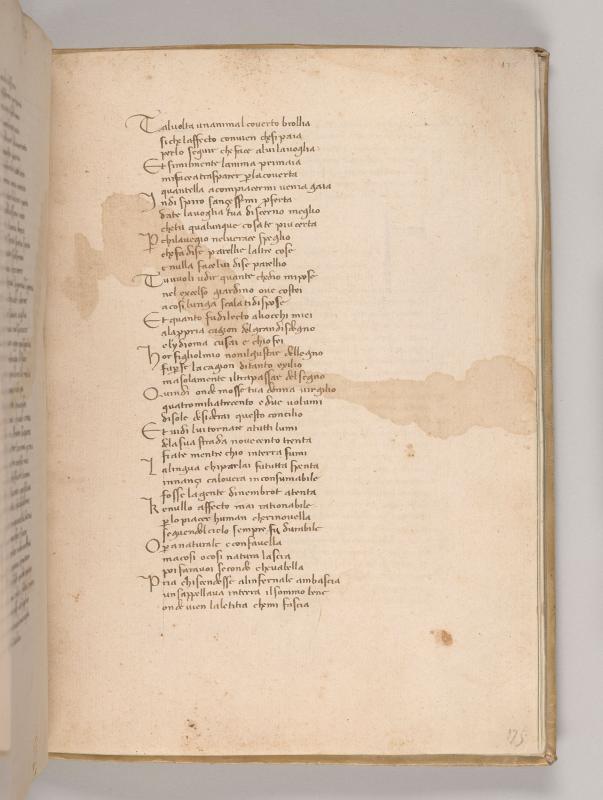 175
Talvolta un animal coverto brollia
si che laffecto convien chesi paia
perlo seguir che face alui lavoglia
Et similmente lanima primaia
mi facea trasparer p la coverta
quantella a compiacermi venia gaia
Indi spiro sançessermi pferta
date lavoglia tua discerno meglio
chetu qualunque cosa te piu certa
Pchi la veggio nel verace speglio
che fa dise pareglie laltre cose
e nulla face lui dise pareglio
Tu vuoli udir quante che dio mi pose
nel excelso giardino ove costei
a cosi lunga scala ti dispose
Et quanto fu dilecto aliocchi miei
ala ppria cagion del gran disdegno
e lydioma cusai e chio fei
Hor figliolmio nonil gustar dellegno
fu pse la cagion di tanto exilio
ma solamente il trapassar del segno
Quindi onde mosse tua donna virgilio
quatromilia trecento e due volumi
di sole desiderai questo concilio
Et vidi lui tornare a tutti lumi
dela sua strada novecento trenta
fiate mentre chio in terra fumi
La lingua chi parlai fu tutta spenta
innançi calovera inconsumabile
fosse la gente di nembrot atenta
Ke nullo affecto mai rationabile
plo piacer human che rinovella
seguendo l cielo sempre fu durabile
Opa naturale e confavella
ma cosi o cosi natura lascia
poi fare a voi secondo che vabella
Pria chi scendesse al infernale ambascia
un sappellava in terra il sommo bene
onde vien la letitia che mi fascia
175